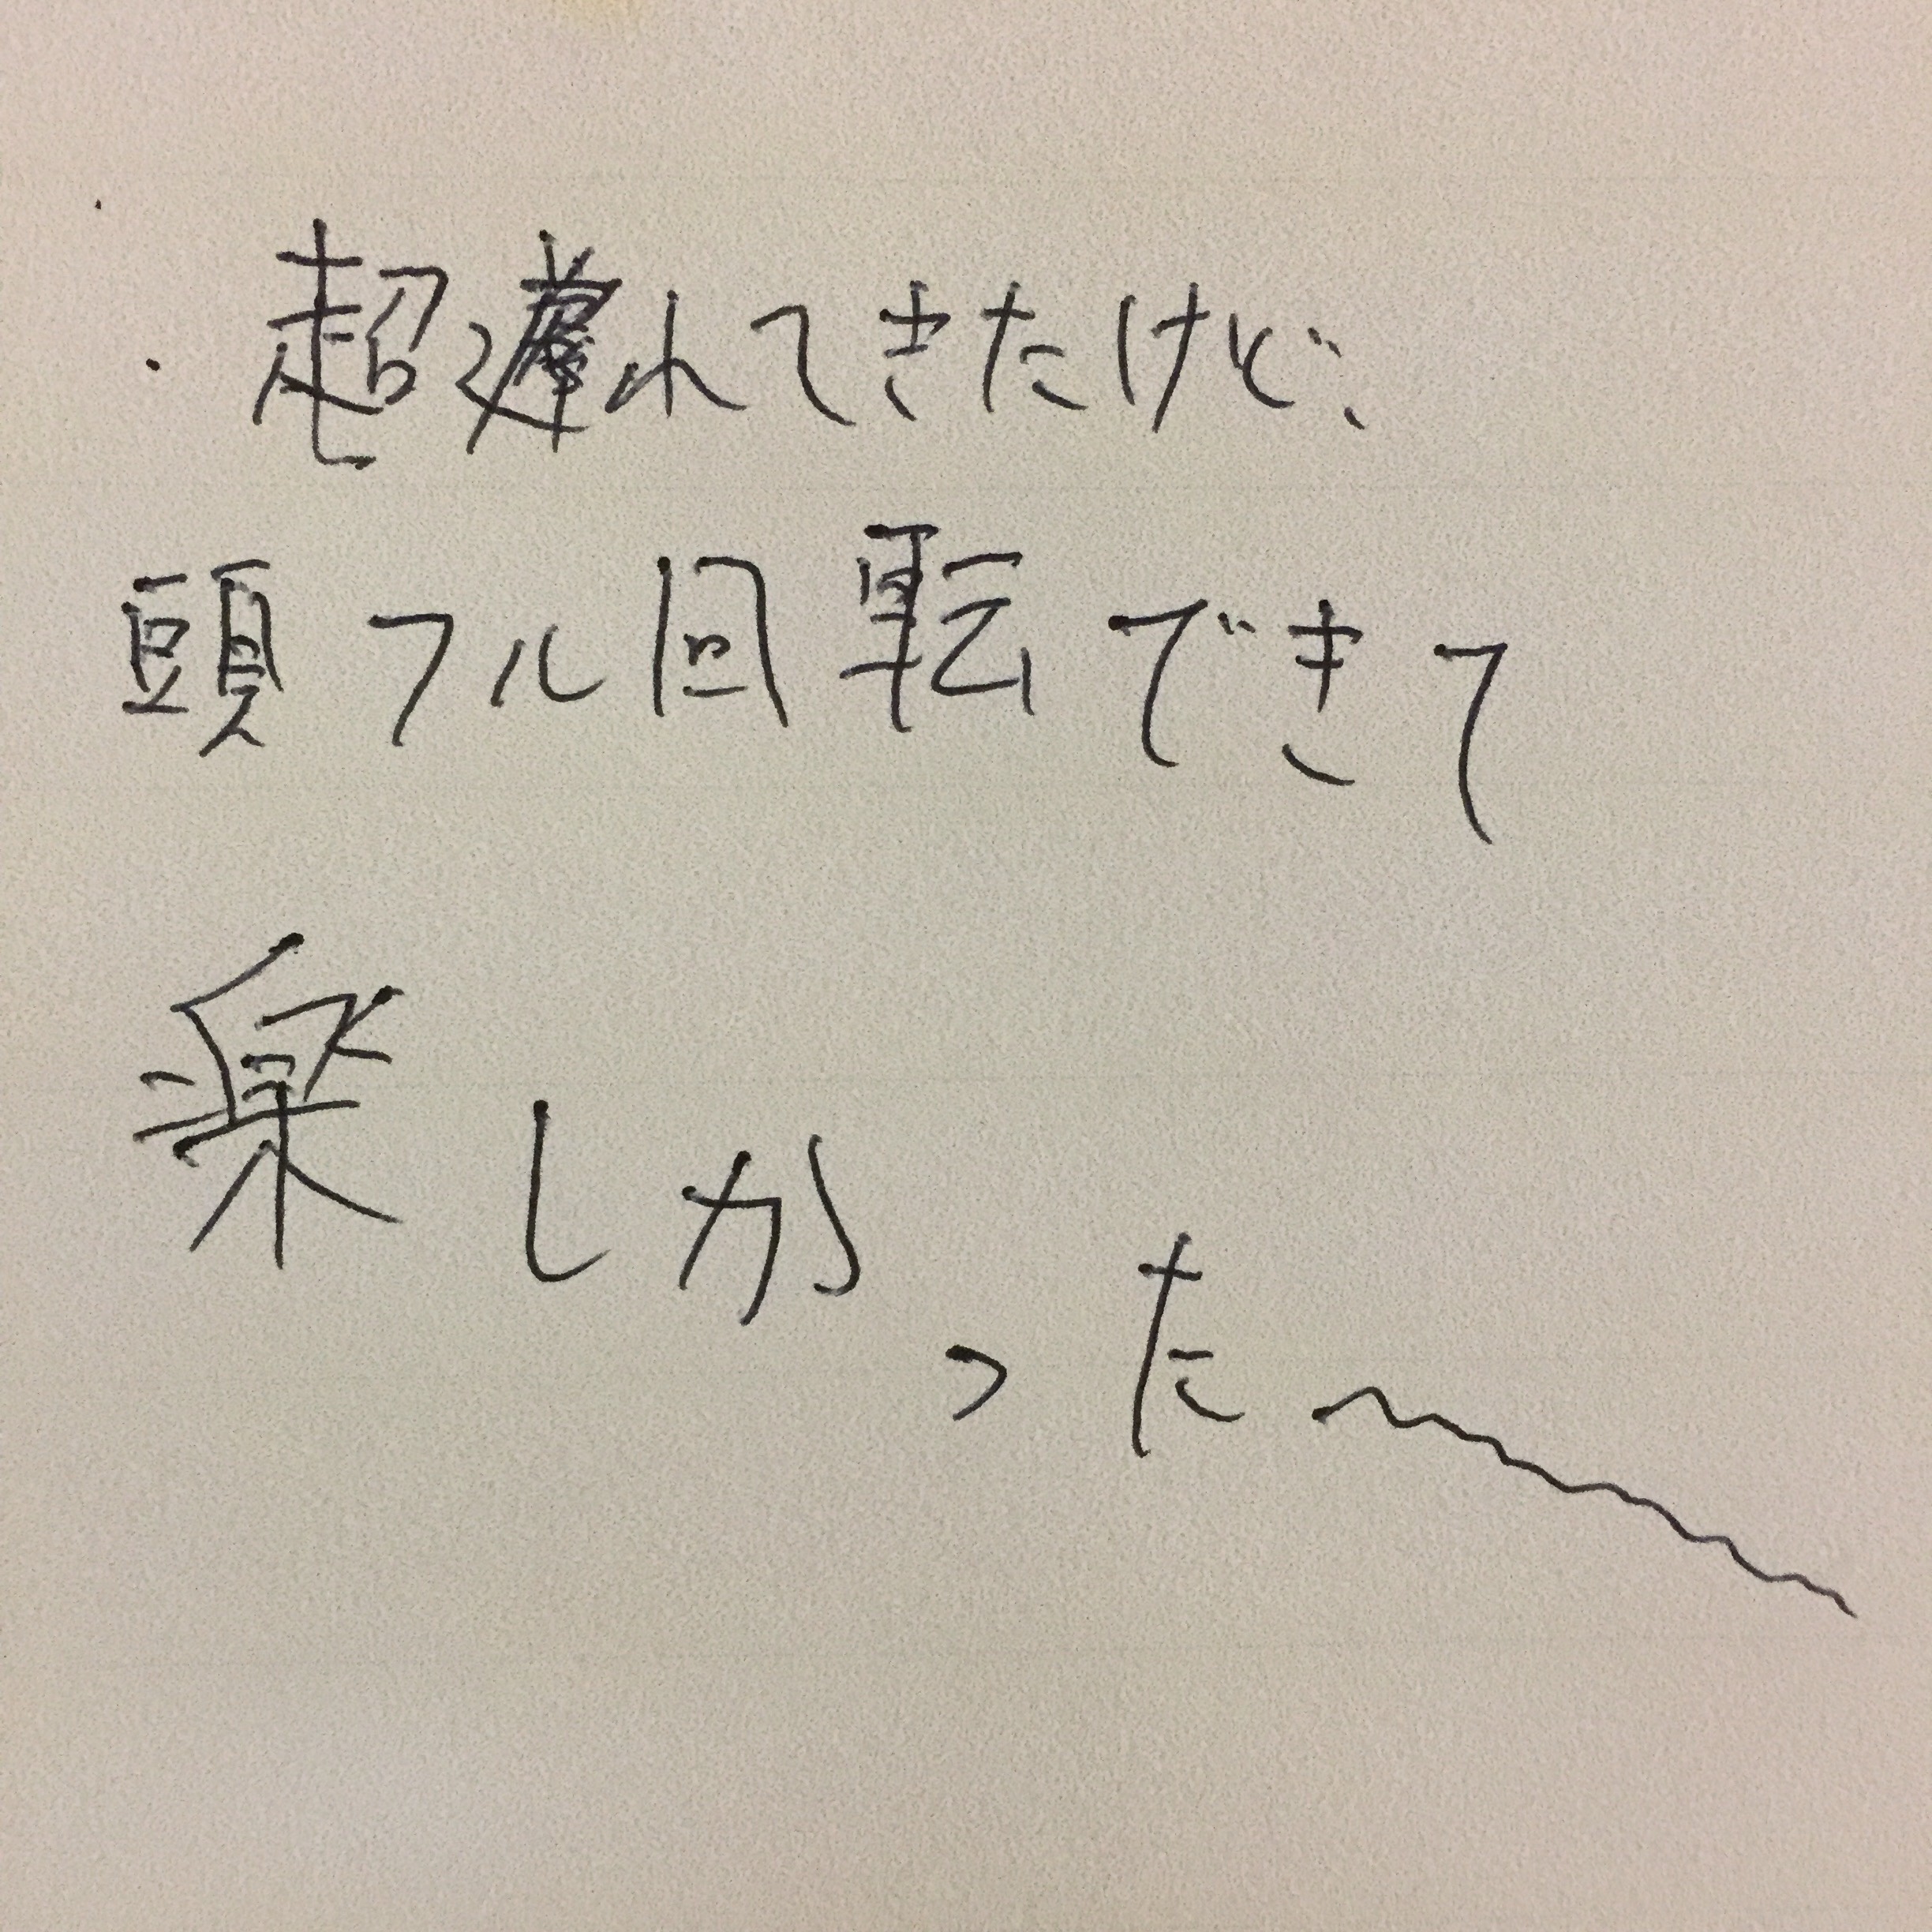 ・超遅れてきたけど、
頭フル回転できて
楽しかった〜